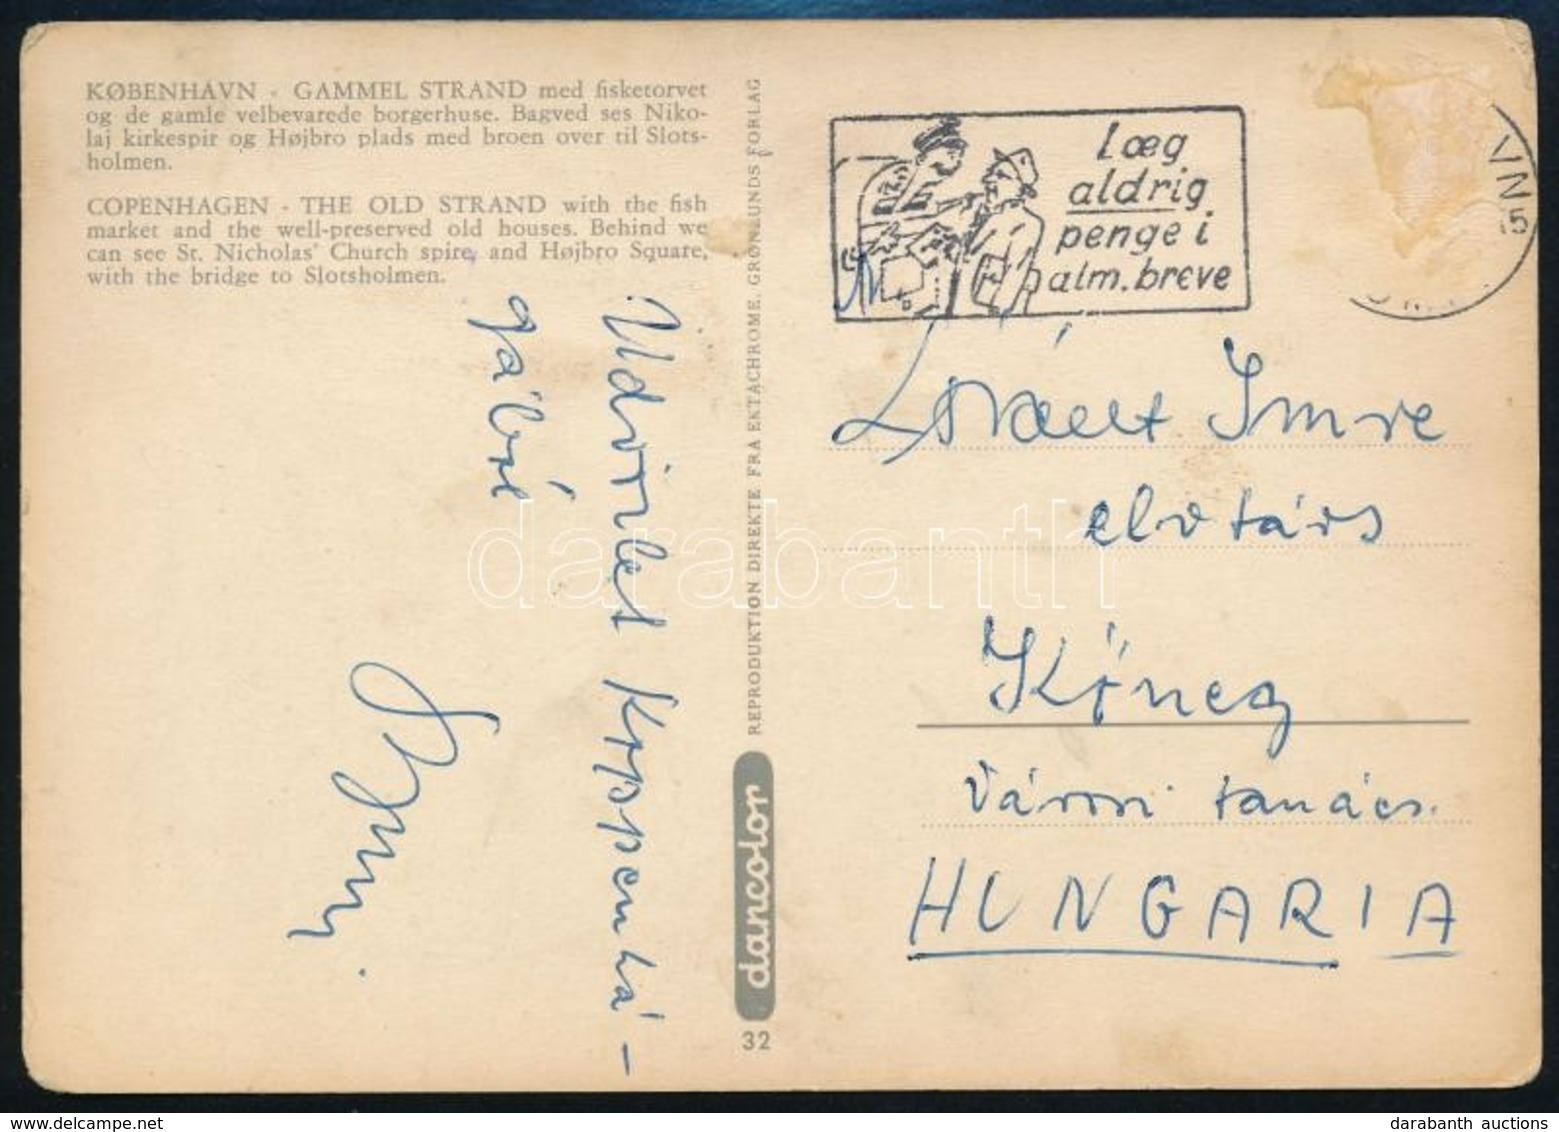 KØBENHAVN - GAMMEL STRAND med fisketorvet
og de gamle velbevarede borgerhuse. Bagved ses Niko-
laj kirkespir og Højbro plads med broen over til Slots-
holmen.
COPENHAGEN - THE OLD STRAND with the fish
market and the well-preserved old houses. Behind we
can see St. Nicholas' Church spire, and Højbro Square,
with the bridge to Slotsholmen.
Üdvözlet Koppenhá-
gából
REPRODUKTION DIREKTE FRA EKTACHROME. GRØNLUNDS FORLAG
dancolor
32
Læg
aldrig
penge i
alm. breve
VN
15
Lóránt Imre
elvtárs
Kőszeg
Városi tanács.
HUNGARIA
darabanth
darabanth auctions